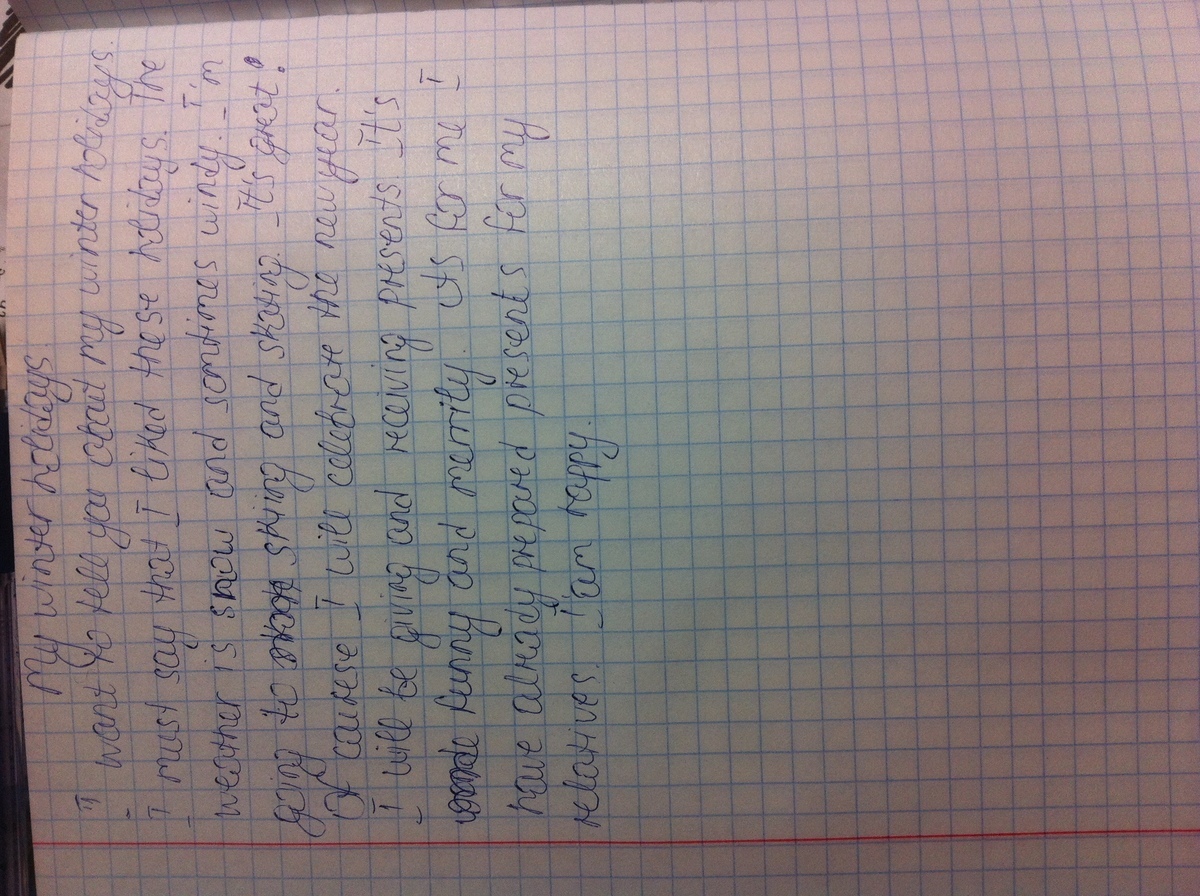 My winter holidays.
I want to tell you about my winter holidays.
I must say that I liked these holidays. The
weather is snow and somtimes windy. I'm
going to skiing and skating. It's great!
Of caurese I will celebrate the new year.
I will be giving and receiving presents. It's
funny and merrily. its for me I
have already prepared presents for my
relatives. I'am happy.